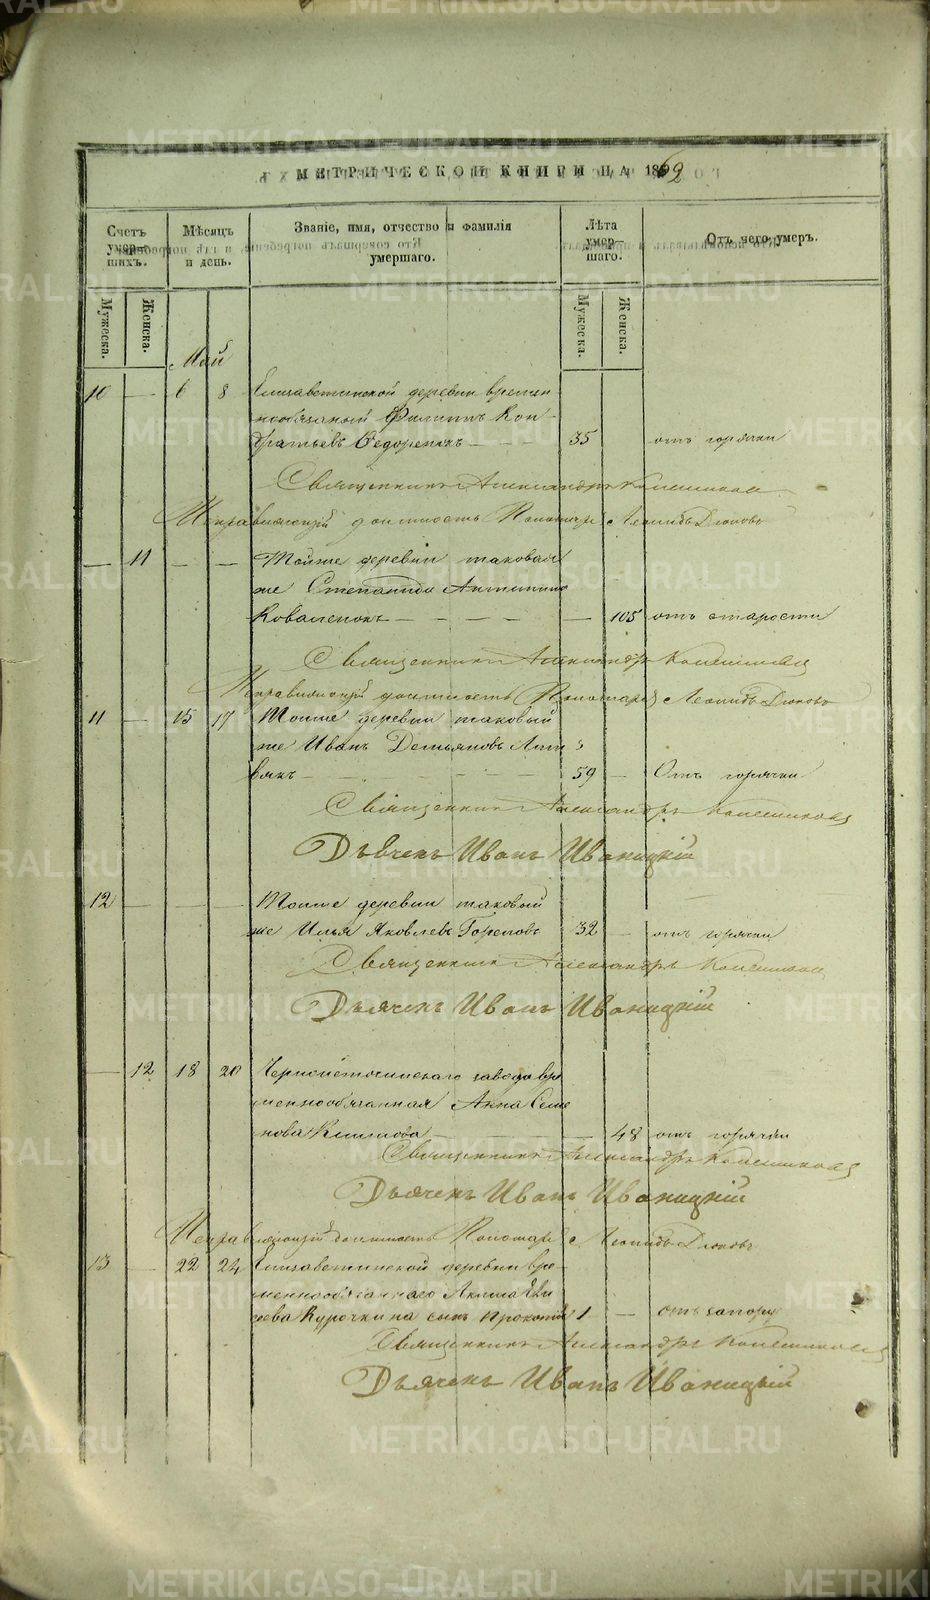 МЕТРИЧЕСКОЙ КНИГИ НА 1862
Счетъ умер-шихъ.
Мѣсяцъ и день.
Званіе, имя, отчество и фамилія умершаго.
Лѣта умер-шаго.
Отъ чего умеръ.
Мужеска.
Женска.
Мужеска.
Женска.
Май
10 — 6 8 Елисаветинской деревни времен
нообязаный Филиппъ Кон-
дратьевъ Федоренокъ — — — 35 отъ горячки
Священникъ Александръ
Исправляющій должность Пономаря Леонидъ Дюковъ
— 11 — — Тойже деревни таковая
же Степанида Антипина
Коваленокъ — — — — — 105 отъ старости
Священникъ Александръ
Исправляющій должность Пономаря Леонидъ Дюковъ
11 — 15 17 Тойже деревни таковый
же Иванъ Демьяновъ
59 — Отъ горячки
Священникъ Александръ
Дьячекъ Иванъ Иваницкій
12 — — — Тойже деревни таковый
же Илья Яковлевъ Гореловъ 32 — отъ горячки
Священникъ Александръ
Дьячекъ Иванъ Иваницкій
— 12 18 20 Черноисточинскаго завода вре
меннообязанная Анна Семе
нова Климова — — 48 отъ горячки
Священникъ Александръ
Дьячекъ Иванъ Иваницкій
Исправляющій должность Пономаря Леонидъ Дюковъ
13 — 22 24 Елисаветинской деревни вре-
меннообязаннаго Акима
Курочкина сынъ Прокопій 1 — отъ запору
Священникъ Александръ
Дьячекъ Иванъ Иваницкій
METRIKI.GASO-URAL.RU